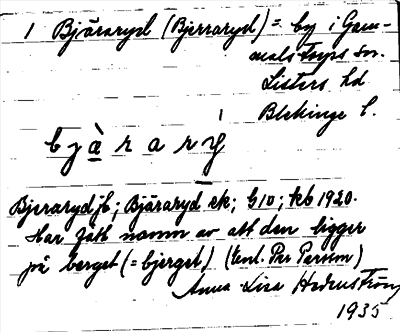 1 Bjäraryd (Bjerraryd) = by i Gam-
malstorps sn.
Listers hd
Blekinge l.
b j à r a r y
Bjeraryd jb; Bjäraryd ek; G10; tkb 1920.
Har fått namn av att den ligger
på berget (= bjerget) (Enl. Per Persson)
Anna Lisa Hedenström
1935